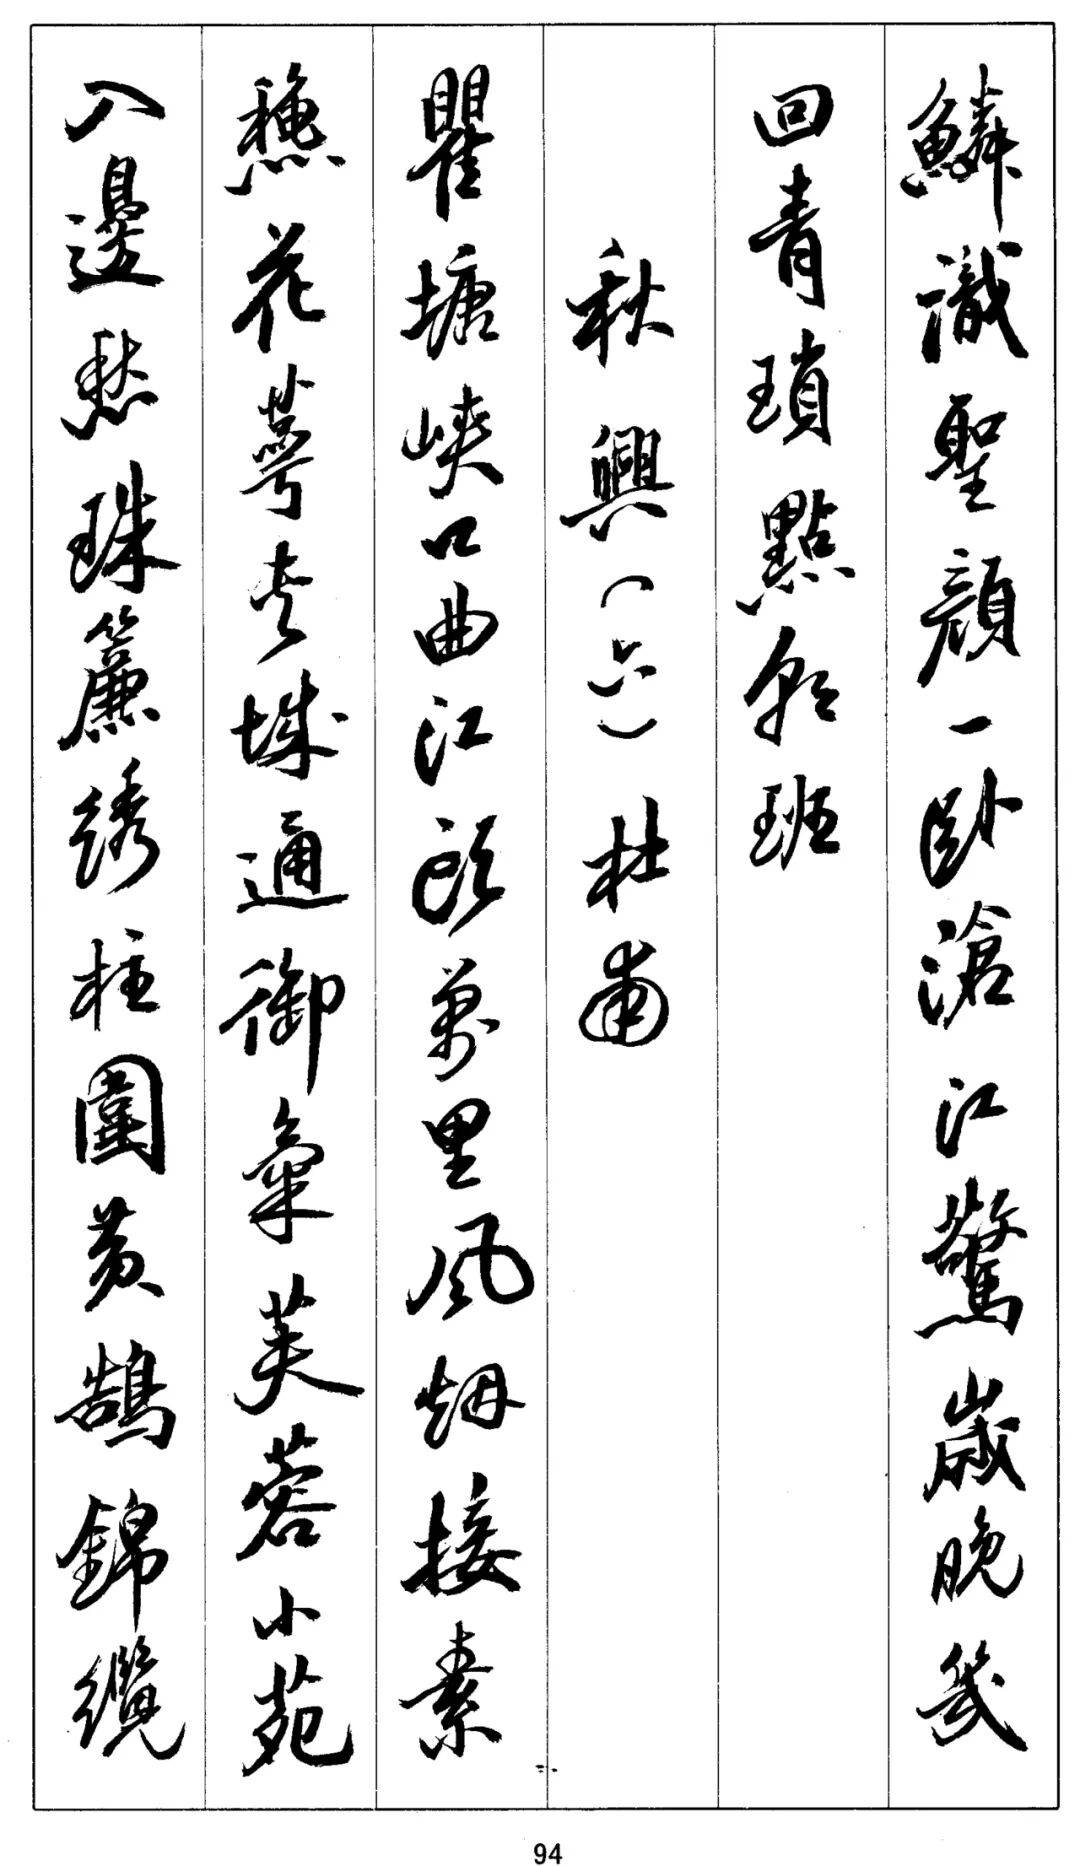 鱗識聖顏一卧滄江驚歲晚幾
回青瑣點朝班
秋興（六）杜甫
瞿塘峽口曲江頭萬里風烟接素
穐花萼夾城通御氣芙蓉小苑
入邊愁珠簾綉柱圍黃鵠錦纜
94